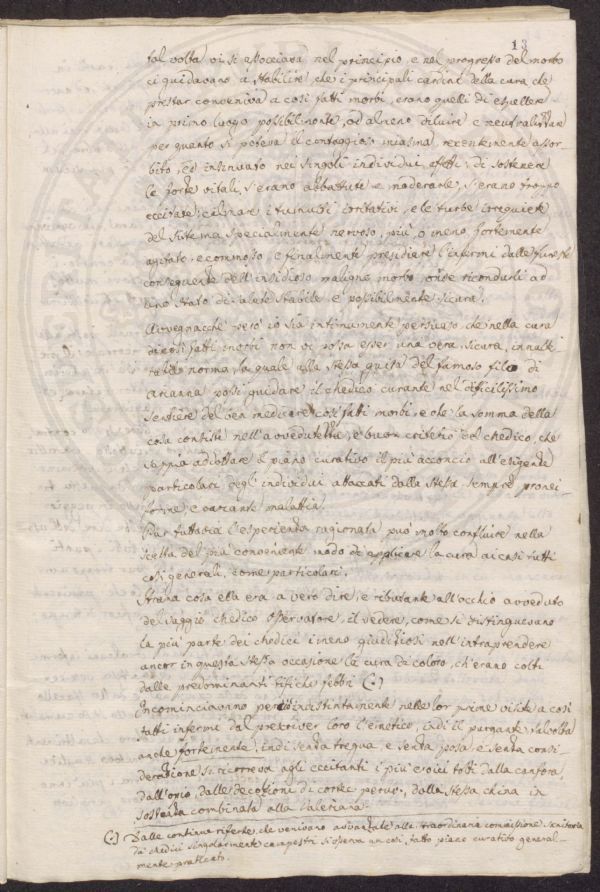 13
tal volta vi si associava nel principio, e nel progresso del morbo
ci guidavano a stabilire, che i principali cardini della cura che
prestar conveniva a così fatti morbi, erano quelli di espellere
in primo luogo possibilmente, od almeno diluire e neutralizzare
per quanto si poteva il contaggioso miasma, recentemente assor-
bito, ed insinuato nei singoli individui affetti; di sostenere
le forze vitali, s'erano abbattute e moderarle, s'erano troppo
eccitate; calmare i tumulti irritativi, e le turbe irrequiete
del sistema specialmente nervoso, più o meno, fortemente
agitato e commosso, e finalmente presidiare l'infermi dalle funeste
conseguenze dell'insidioso maligno morbo, onde ricondurli ad
uno stato di salute stabile e possibilmente sicura.
Avvegnacchè però io sia intimamente persuaso che nella cura
di così fatti morbi non vi possa esser una vera, sicura, innalte-
rabile norma, la quale alla stessa guisa del famoso filo di
Arianna possi guidare il Medico curante nel difficilissimo
sentiere del ben medicare così fatti morbi, e che la somma della
cosa consista nell'avvedutezza, e buon criterio del Medico, che
sappia addottare il piano curativo il più acconcio all'esigenze
particolari degl'individui attaccati dalla stessa sempre protei-
forme, e variante malattia.
Pur tuttavia l'esperienza ragionata può molto confluire nella
scelta del più conveniente modo di applicare la cura ai casi tutti
così generali, come particolari.
Strana cosa ella era a vero dire, e ributante all'occhio avveduto
del saggio Medico osservatore, il vedere, come si distinguevano
la più parte dei Medici i meno giudiziosi nell'intraprendere
ancor in questa stessa occasione la cura di coloro, ch'erano colti
dalle predominanti tifiche febbri (*)
Incominciavano però indistintamente nelle lor prime visite a così
fatti infermi dal prescriver loro l'emetico, indi il purgante, talvolta
anche fortemente, indi senza tregua, e senza posa, e senza consi-
derazione si ricorreva agli eccitanti i più eroici tosti dalla canfora,
dall'opio, dalle decozioni di cortec. peruv., dalla stessa china in
sostanza combinata alla Valeriana.
(*) Dalle continue riferte, che venivano avvanzate alla straordinaria commissione Sanitaria
da' Medici singolarmente campestri si osserva un così fatto piano curativo general-
mente praticato.